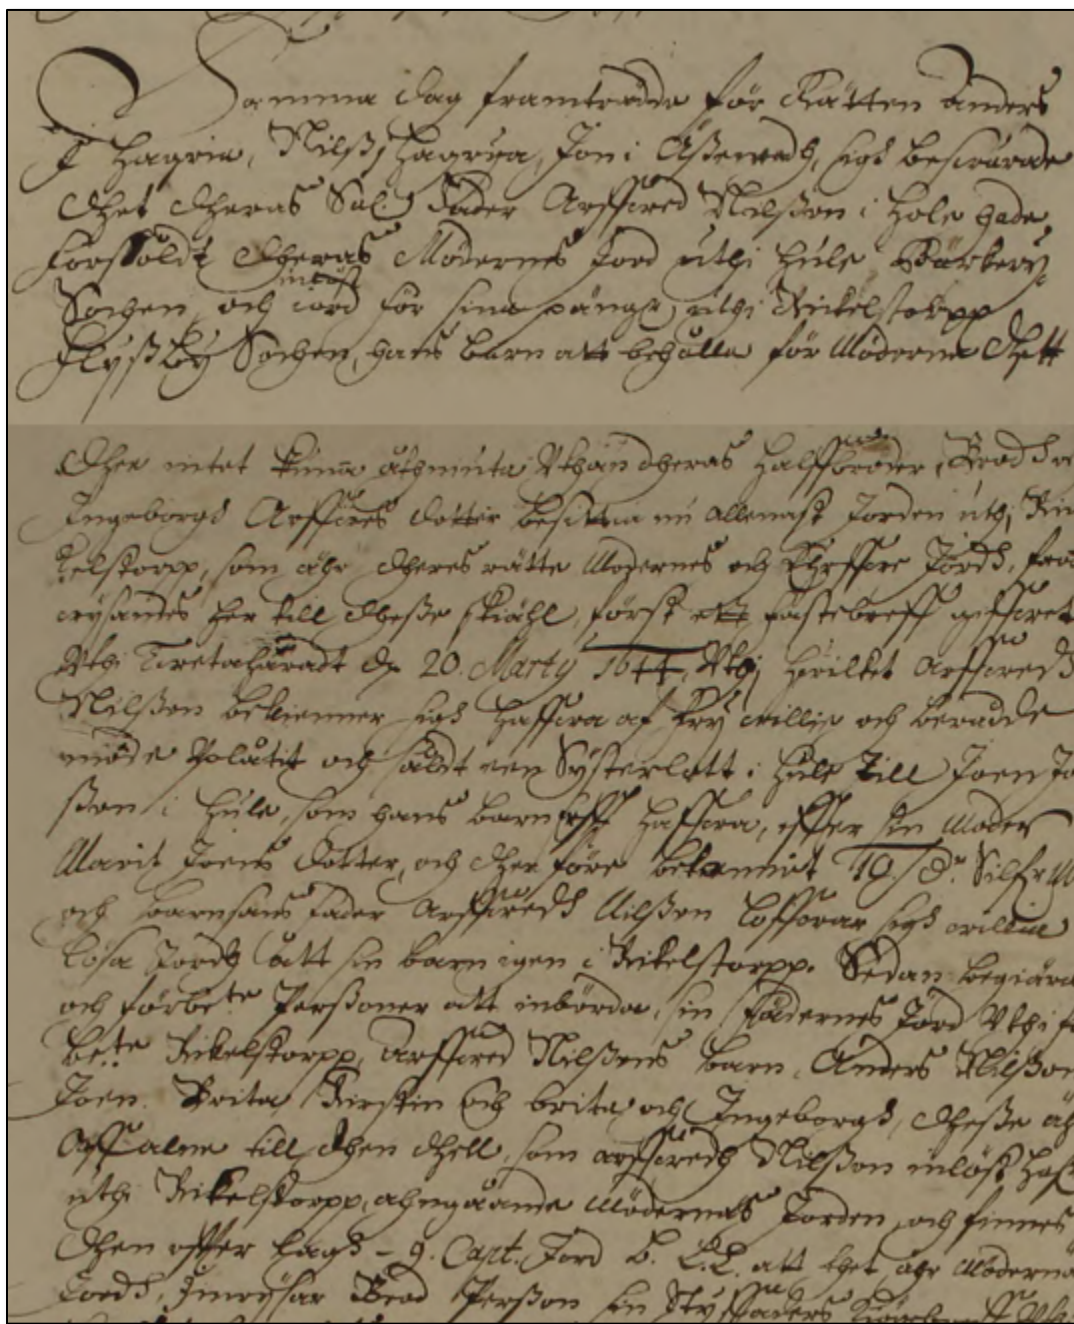 Samma dag framträdde för Rätten Anders
i Hagria, Nilß i Hagria, Joni Åßeredh, sigh beswärade
dhet dheras Sal. Fader Arffwed Nilßon i Hole hade
försoldt dheras Mödernes Jord uthi Hule Bärkery
Sochen, och inlöst iord för sine pängr, uthi Rickelstorpp
Flyßby Sochen, hans barn att behålla för Möderne Rätt
dher intet kunna åthniuta Uthan dheras halffbroder,
Ingeborgh Arffweds dotter besittia nu allenast Jorden uthi Ric
kelstorpp, som ähr dheres rätte Modernes och Jordh, fram
wysandes her till dheße skiähl, först ett fastebreff giffwet
Uthi Tweta häradt dn 20. Marty 1644, Uthj hwilket Arffwedh
Nilßon bekienner sigh haffwa af fry willie och berådde
mode Uplåtit och såldt een Systerlott i Hule till Joen Jo
ßon i Hule, som hans barn haffwa, effter sin Moder
Marit Joens dotter, och dher före bekommit 19. dr. Silfr M
och barnsens fader Arffwedh Nilßon loffwar sigh willia
lösa Jordh ått sin barn igen i Rikelstorpp. Sedan begiära
och förbete Perßoner att inbörda, sin fädernes Jord Uthi fo
bete Rikelstorpp, Arffwed Nilßons barn, Anders Nilßon
Joen. Brita, Kirstin och brita, och Ingeborgh, dheße äh
till dhen dhell, som arffwedh Nilßon inlöst haf
uthi Rikelstorpp, ahngåande Mödernes Jorden, och finnes
dhen effter lagh - 9. Capt. Jord B. L.L. att thet ähr Möderne
Jordh, Inwysar Perßon sin Styffaders